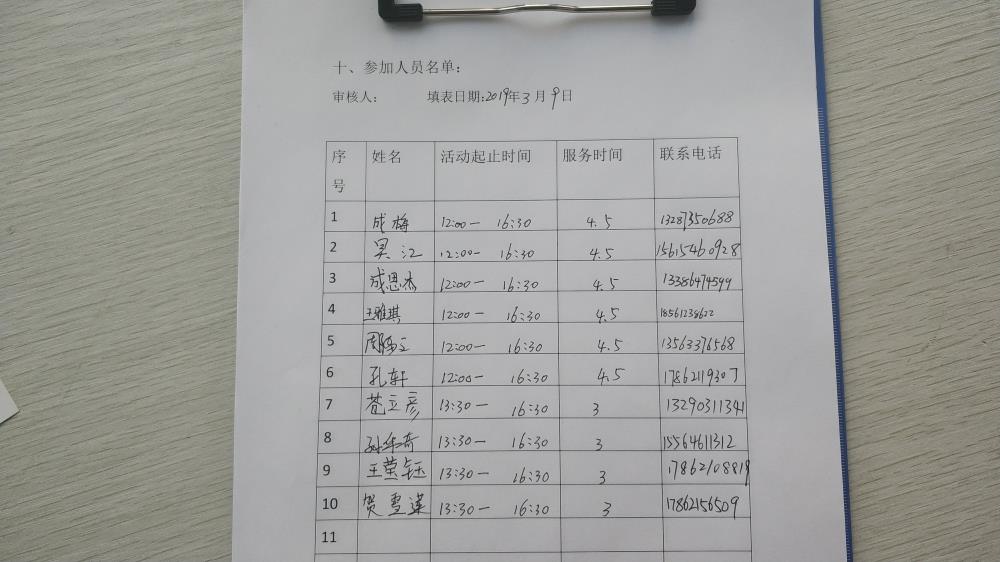 十、参加人员名单：
审核人： 填表日期：2019年3月9日
序号 姓名 活动起止时间 服务时间 联系电话
1 成梅 12:00— 16:30 4.5 13287350688
2 吴江 12:00— 16:30 4.5 15615460928
3 成思杰 12:00— 16:30 4.5 13386474599
4 王雅琪 12:00— 16:30 4.5 18561238622
5 12:00— 16:30 4.5 13563376568
6 孔轩 12:00— 16:30 4.5 17862119307
7 苍立彦 13:30— 16:30 3 13290311341
8 13:30— 16:30 3 15564611312
9 王莹钰 13:30— 16:30 3 17862108819
10 贺 13:30— 16:30 3 17862156509
11